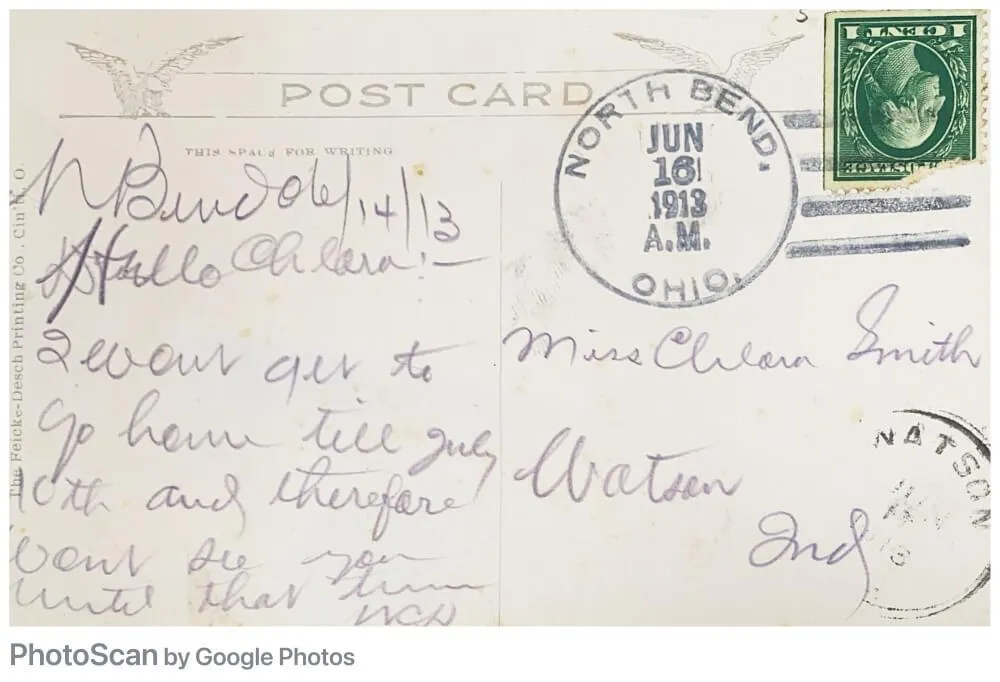 POST CARD
THIS SPACE FOR WRITING
The Feicke-Desch Printing Co., Cin'ti, O.
1 CENT 1
POSTAGE
NORTH BEND,
JUN
16
1913
A.M.
OHIO.
N Bend O 6/14/13
Hello Chlara:—
I wont get to
go home till July
10th and therefore
wont see you
until that time
Miss Chlara Smith
Watson
Ind
WATSON
PhotoScan by Google Photos